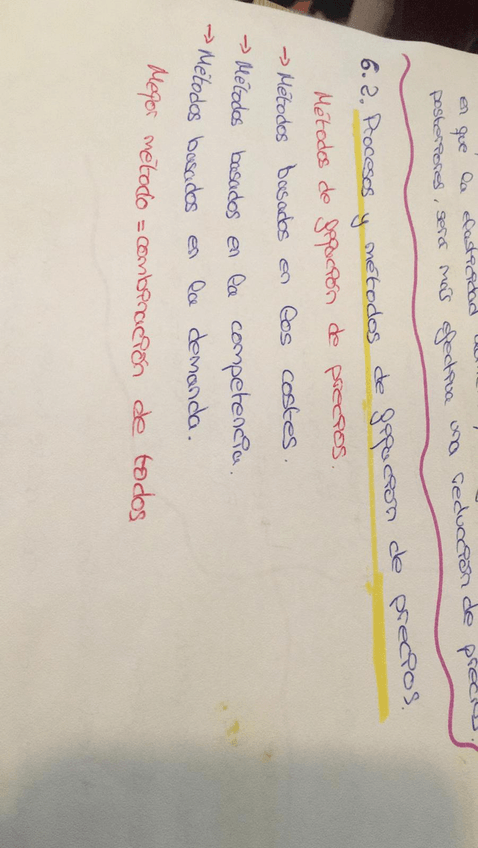 en que la elasticidad
posteriores, será más efectiva una reducción de precios.
6.2. Procesos y métodos de fijación de precios.
Métodos de fijación de precios.
→ Métodos basados en los costes.
→ Métodos basados en la competencia.
→ Métodos basados en la demanda.
Mejor método = combinación de todos